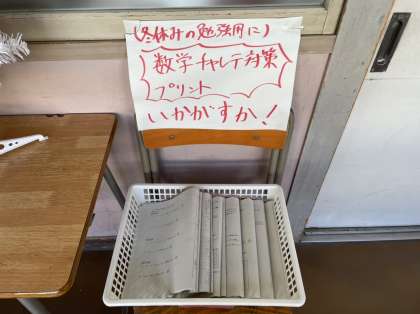 (冬休みの勉強用に)
数学チャレテ対策
プリント
いかがすか!